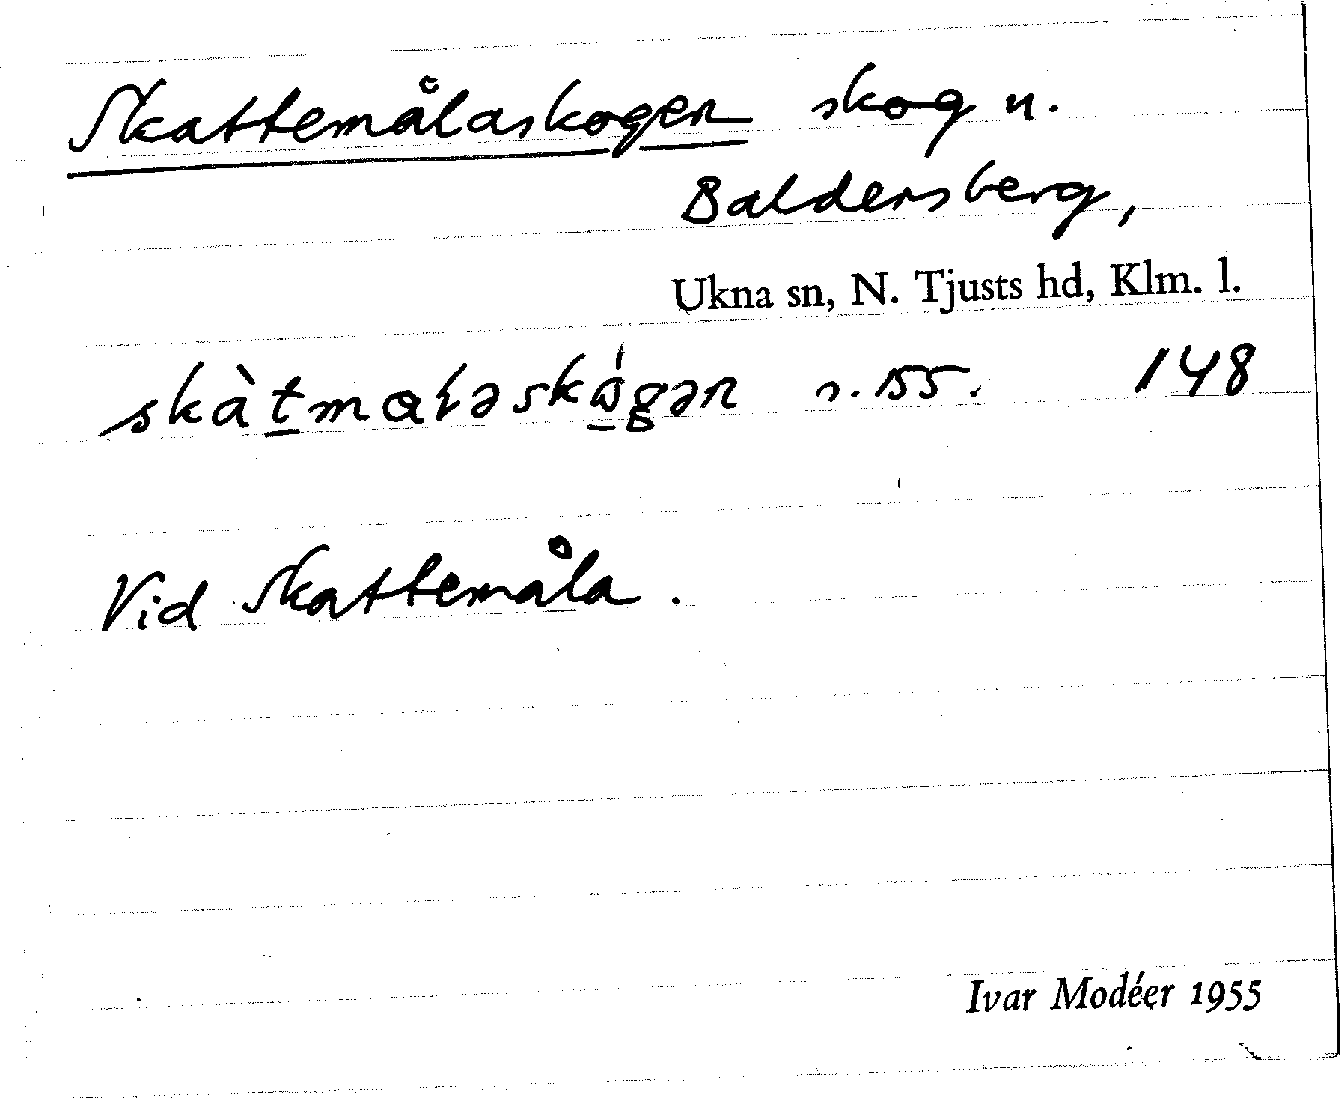 Skattemålaskogen skog u.
Baldersberg,
Ukna sn, N. Tjusts hd, Klm. l.
148
Vid Skattemåla.
Ivar Modéer 1955